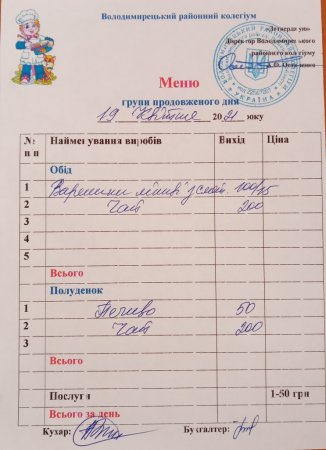 Володимирецький районний колегіум
«Затверджую»
Директор Володимирецького
районного колегіуму
УКРАЇНА
Меню
групи продовженого дня
19 квітня 2021 року
№ п п Найменування виробів Вихід Ціна
Обід
1 Вареники ліниві з сет. 100/15
2 Чай 200
3
4
5
Всього
Полуденок
1 Печиво 50
2 Чай 200
3
Всього
Послуги 1-50 грн
Всього за день
Кухар: Бухгалтер: